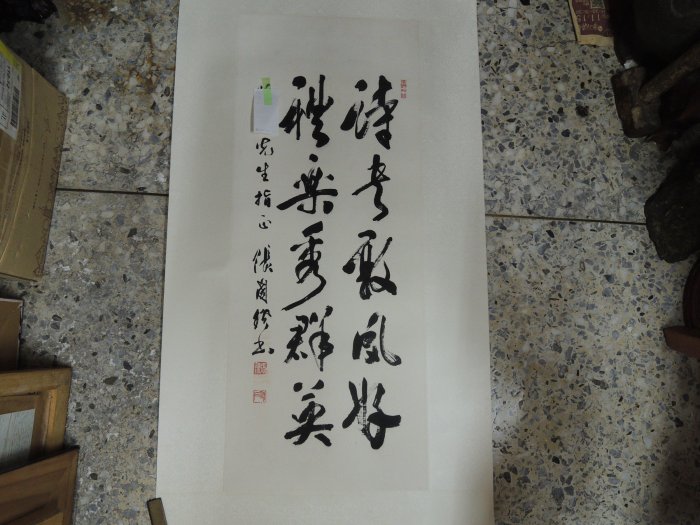 詩書敦夙好
禮樂秀群英
先生指正 張 書